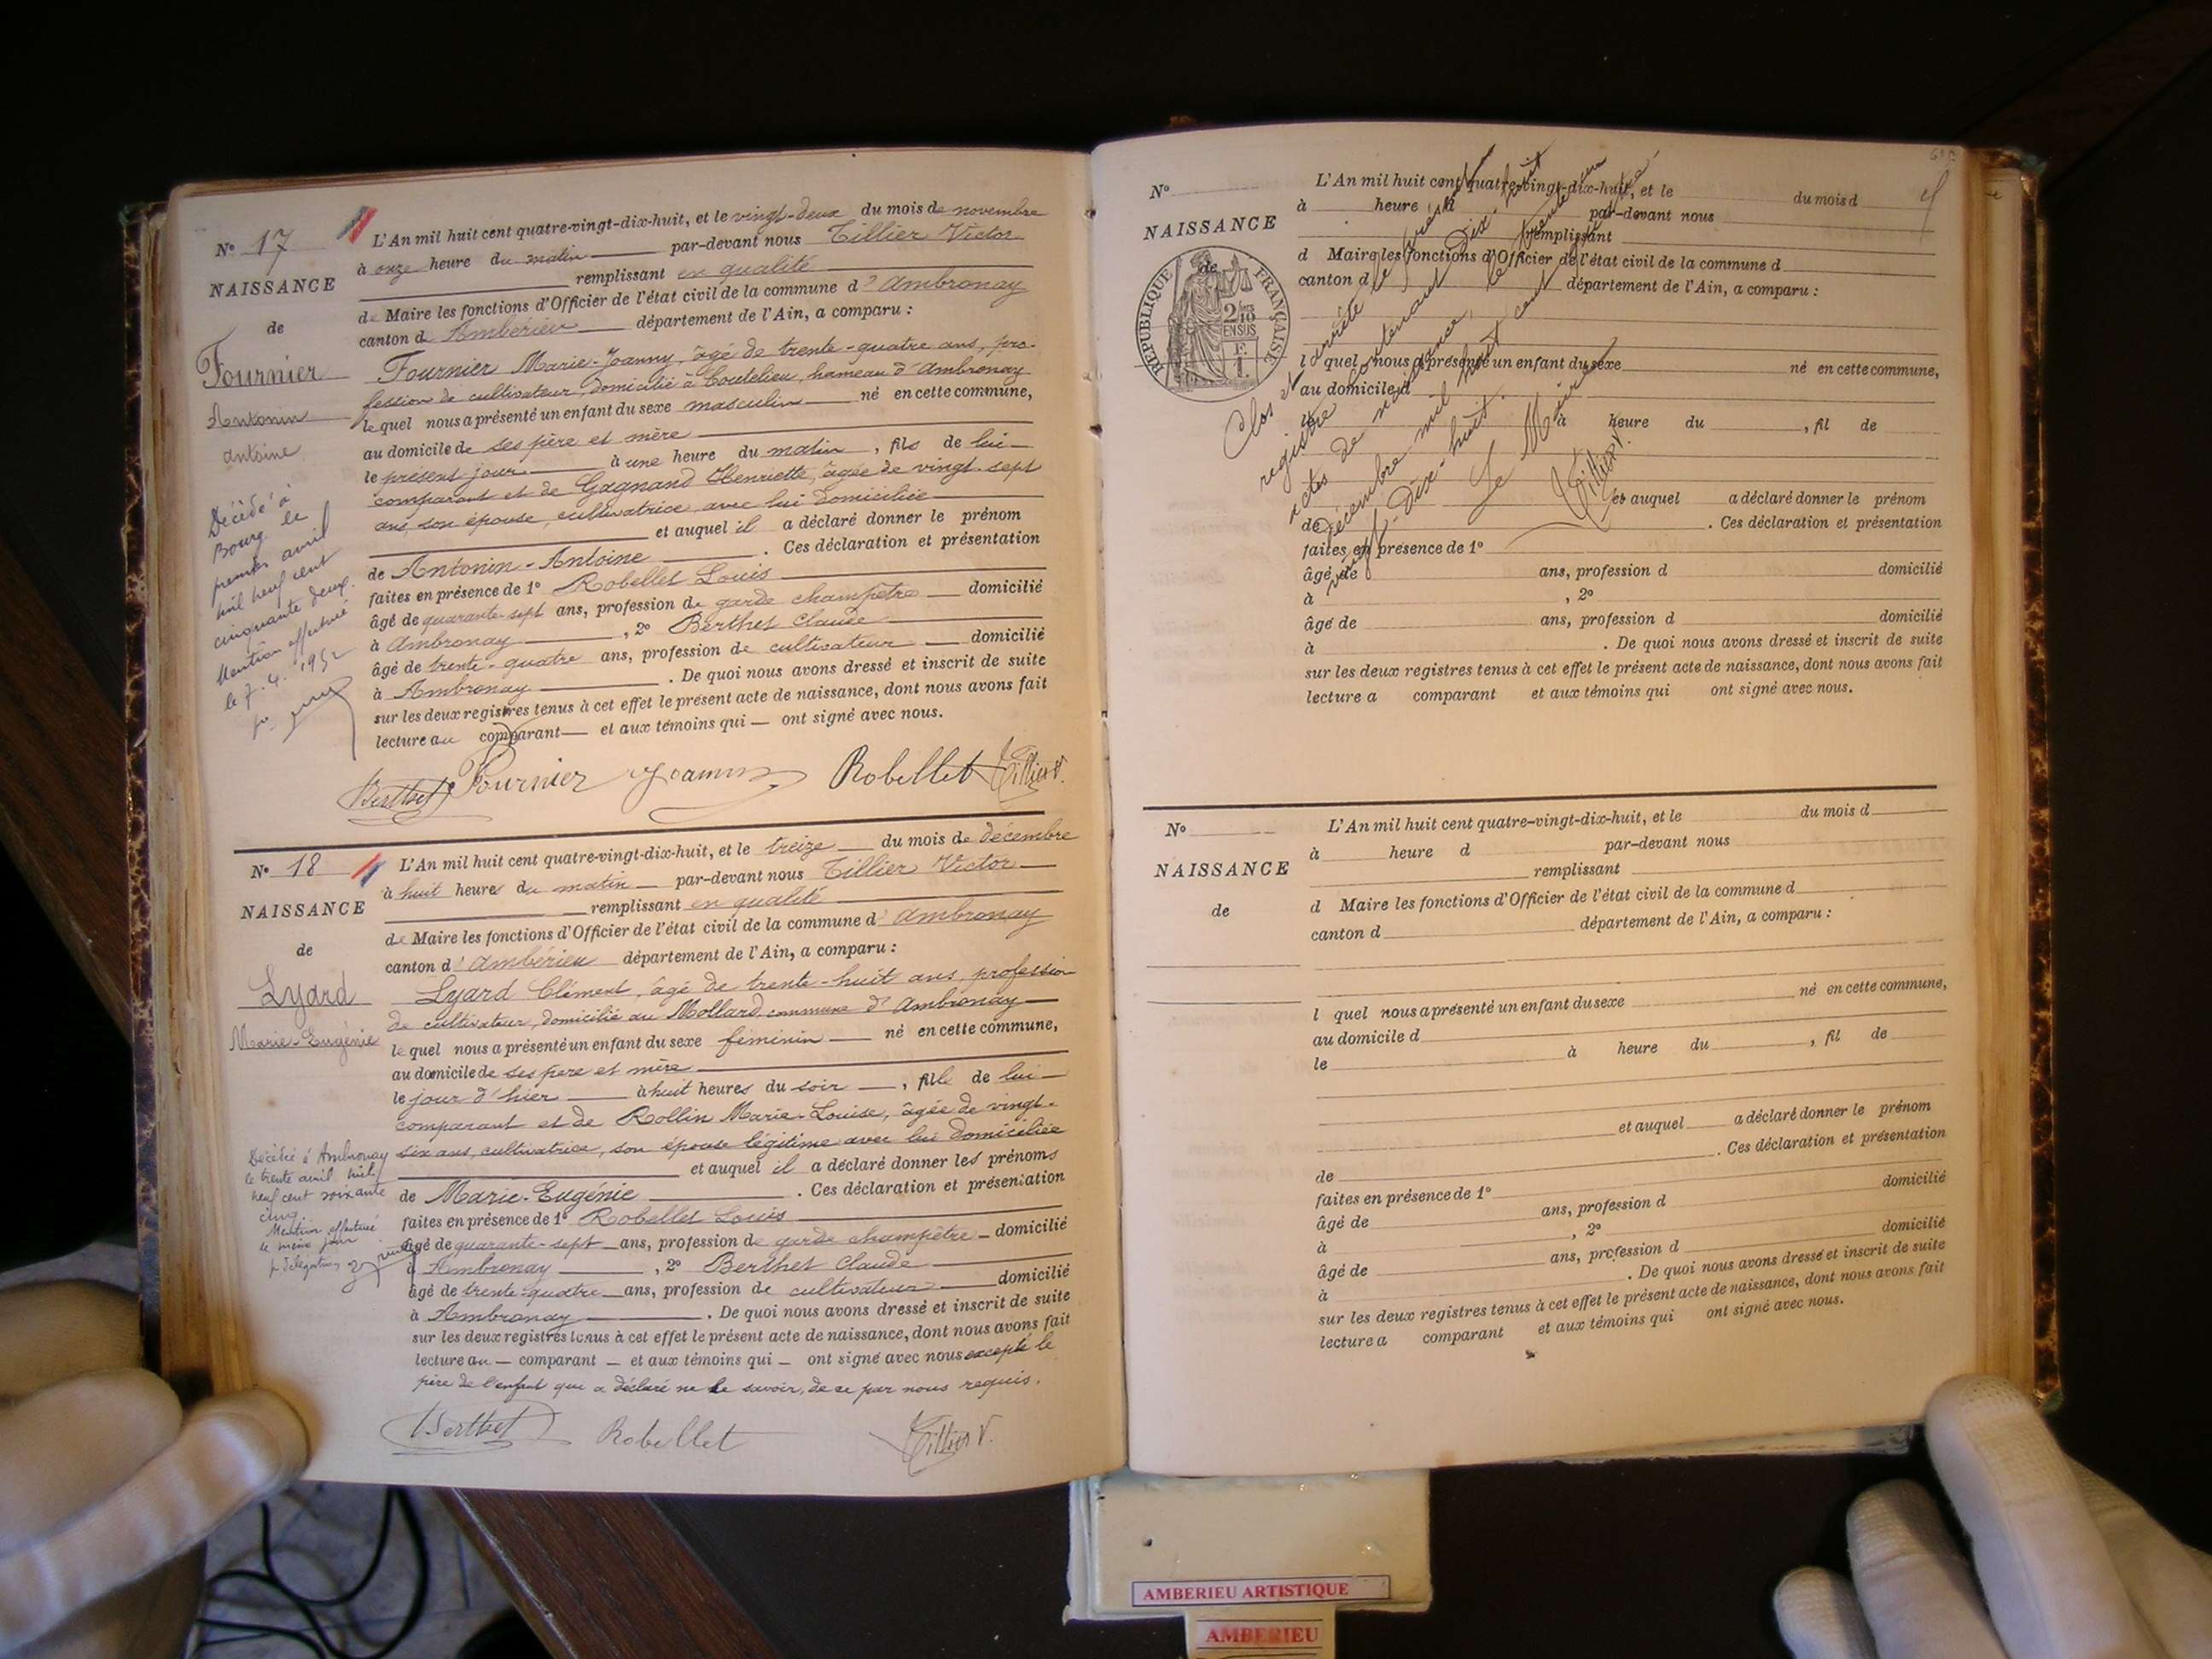 N° 17
NAISSANCE
de
Fournier
Antonin
Antoine
Décédé à
Bourg le
premier avril
mil neuf cent
cinquante deux.
Mention effectuée
le 7.4.1952
L'An mil huit cent quatre-vingt-dix-huit, et le vingt-deux du mois de novembre
à onze heure du matin par-devant nous Tillier Victor
remplissant en qualité
de Maire les fonctions d'Officier de l'état civil de la commune d'Ambronay
canton d Ambérieu département de l'Ain, a comparu :
Fournier Marie-Joanny, âgé de trente-quatre ans, pro-
fession de cultivateur, domicilié à Coutelieu, hameau d'Ambronay
lequel nous a présenté un enfant du sexe masculin né en cette commune,
au domicile de ses père et mère
le présent jour à une heure du matin, fils de lui
comparant et de Gagnand Henriette, âgée de vingt-sept
ans, son épouse, cultivatrice avec lui domiciliée
et auquel il a déclaré donner le prénom
de Antonin-Antoine. Ces déclaration et présentation
faites en présence de 1° Robellet Louis
âgé de quarante-sept ans, profession de garde champêtre domicilié
à Ambronay, 2° Berthet Claude
âgé de trente-quatre ans, profession de cultivateur domicilié
à Ambronay. De quoi nous avons dressé et inscrit de suite
sur les deux registres tenus à cet effet le présent acte de naissance, dont nous avons fait
lecture au comparant et aux témoins qui ont signé avec nous.
Berthet Fournier Joanny Robellet Tillier V.
N° 18
NAISSANCE
de
Lyard
Marie-Eugénie
Décédée à Ambronay
le trente avril mil
neuf cent soixante
cinq.
Mention effectuée
le même jour
L'An mil huit cent quatre-vingt-dix-huit, et le treize du mois de décembre
à huit heures du matin par-devant nous Tillier Victor
remplissant en qualité
de Maire les fonctions d'Officier de l'état civil de la commune d'Ambronay
canton d'Ambérieu département de l'Ain, a comparu :
Lyard Clément, âgé de trente-huit ans, profession
de cultivateur, domicilié au Mollard, commune d'Ambronay
lequel nous a présenté un enfant du sexe féminin né en cette commune,
au domicile de ses père et mère
le jour d'hier à huit heures du soir, fille de lui
comparant et de Rollin Marie-Louise, âgée de vingt-
six ans, cultivatrice, son épouse légitime avec lui domiciliée
et auquel il a déclaré donner les prénoms
de Marie-Eugénie. Ces déclaration et présentation
faites en présence de 1° Robellet Louis
âgé de quarante-sept ans, profession de garde champêtre domicilié
à Ambronay, 2° Berthet Claude
âgé de trente-quatre ans, profession de cultivateur domicilié
à Ambronay. De quoi nous avons dressé et inscrit de suite
sur les deux registres tenus à cet effet le présent acte de naissance, dont nous avons fait
lecture au comparant et aux témoins qui ont signé avec nous excepté le
père de l'enfant qui a déclaré ne le savoir, de ce par nous requis.
Berthet Robellet Tillier V.
N°
NAISSANCE
de
REPUBLIQUE FRANÇAISE
2/10 EN SUS
F. 1.
L'An mil huit cent quatre-vingt-dix-huit, et le du mois d
à heure d par-devant nous
remplissant
d Maire les fonctions d'Officier de l'état civil de la commune d
canton d département de l'Ain, a comparu :
l quel nous a présenté un enfant du sexe né en cette commune,
au domicile d
le à heure du , fil de
et auquel a déclaré donner le prénom
de . Ces déclaration et présentation
faites en présence de 1°
âgé de ans, profession d domicilié
à , 2°
âgé de ans, profession d domicilié
à . De quoi nous avons dressé et inscrit de suite
sur les deux registres tenus à cet effet le présent acte de naissance, dont nous avons fait
lecture a comparant et aux témoins qui ont signé avec nous.
Clos et arrêté le présent
registre contenant dix-huit
actes de naissance, le trente et un
décembre mil huit cent quatre-
vingt-dix-huit.
Le Maire
Tillier V.
N°
NAISSANCE
de
L'An mil huit cent quatre-vingt-dix-huit, et le du mois d
à heure d par-devant nous
remplissant
d Maire les fonctions d'Officier de l'état civil de la commune d
canton d département de l'Ain, a comparu :
l quel nous a présenté un enfant du sexe né en cette commune,
au domicile d
le à heure du , fil de
et auquel a déclaré donner le prénom
de . Ces déclaration et présentation
faites en présence de 1°
âgé de ans, profession d domicilié
à , 2°
âgé de ans, profession d domicilié
à . De quoi nous avons dressé et inscrit de suite
sur les deux registres tenus à cet effet le présent acte de naissance, dont nous avons fait
lecture a comparant et aux témoins qui ont signé avec nous.
AMBERIEU ARTISTIQUE
AMBERIEU